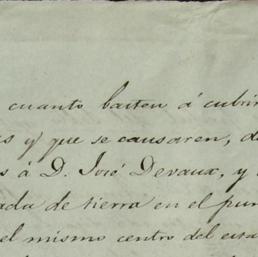 cuanto basten á cubrir
s y que se causaren, d
s á D. José Devaux, y
ada de tierra en el pun
el mismo centro del esta